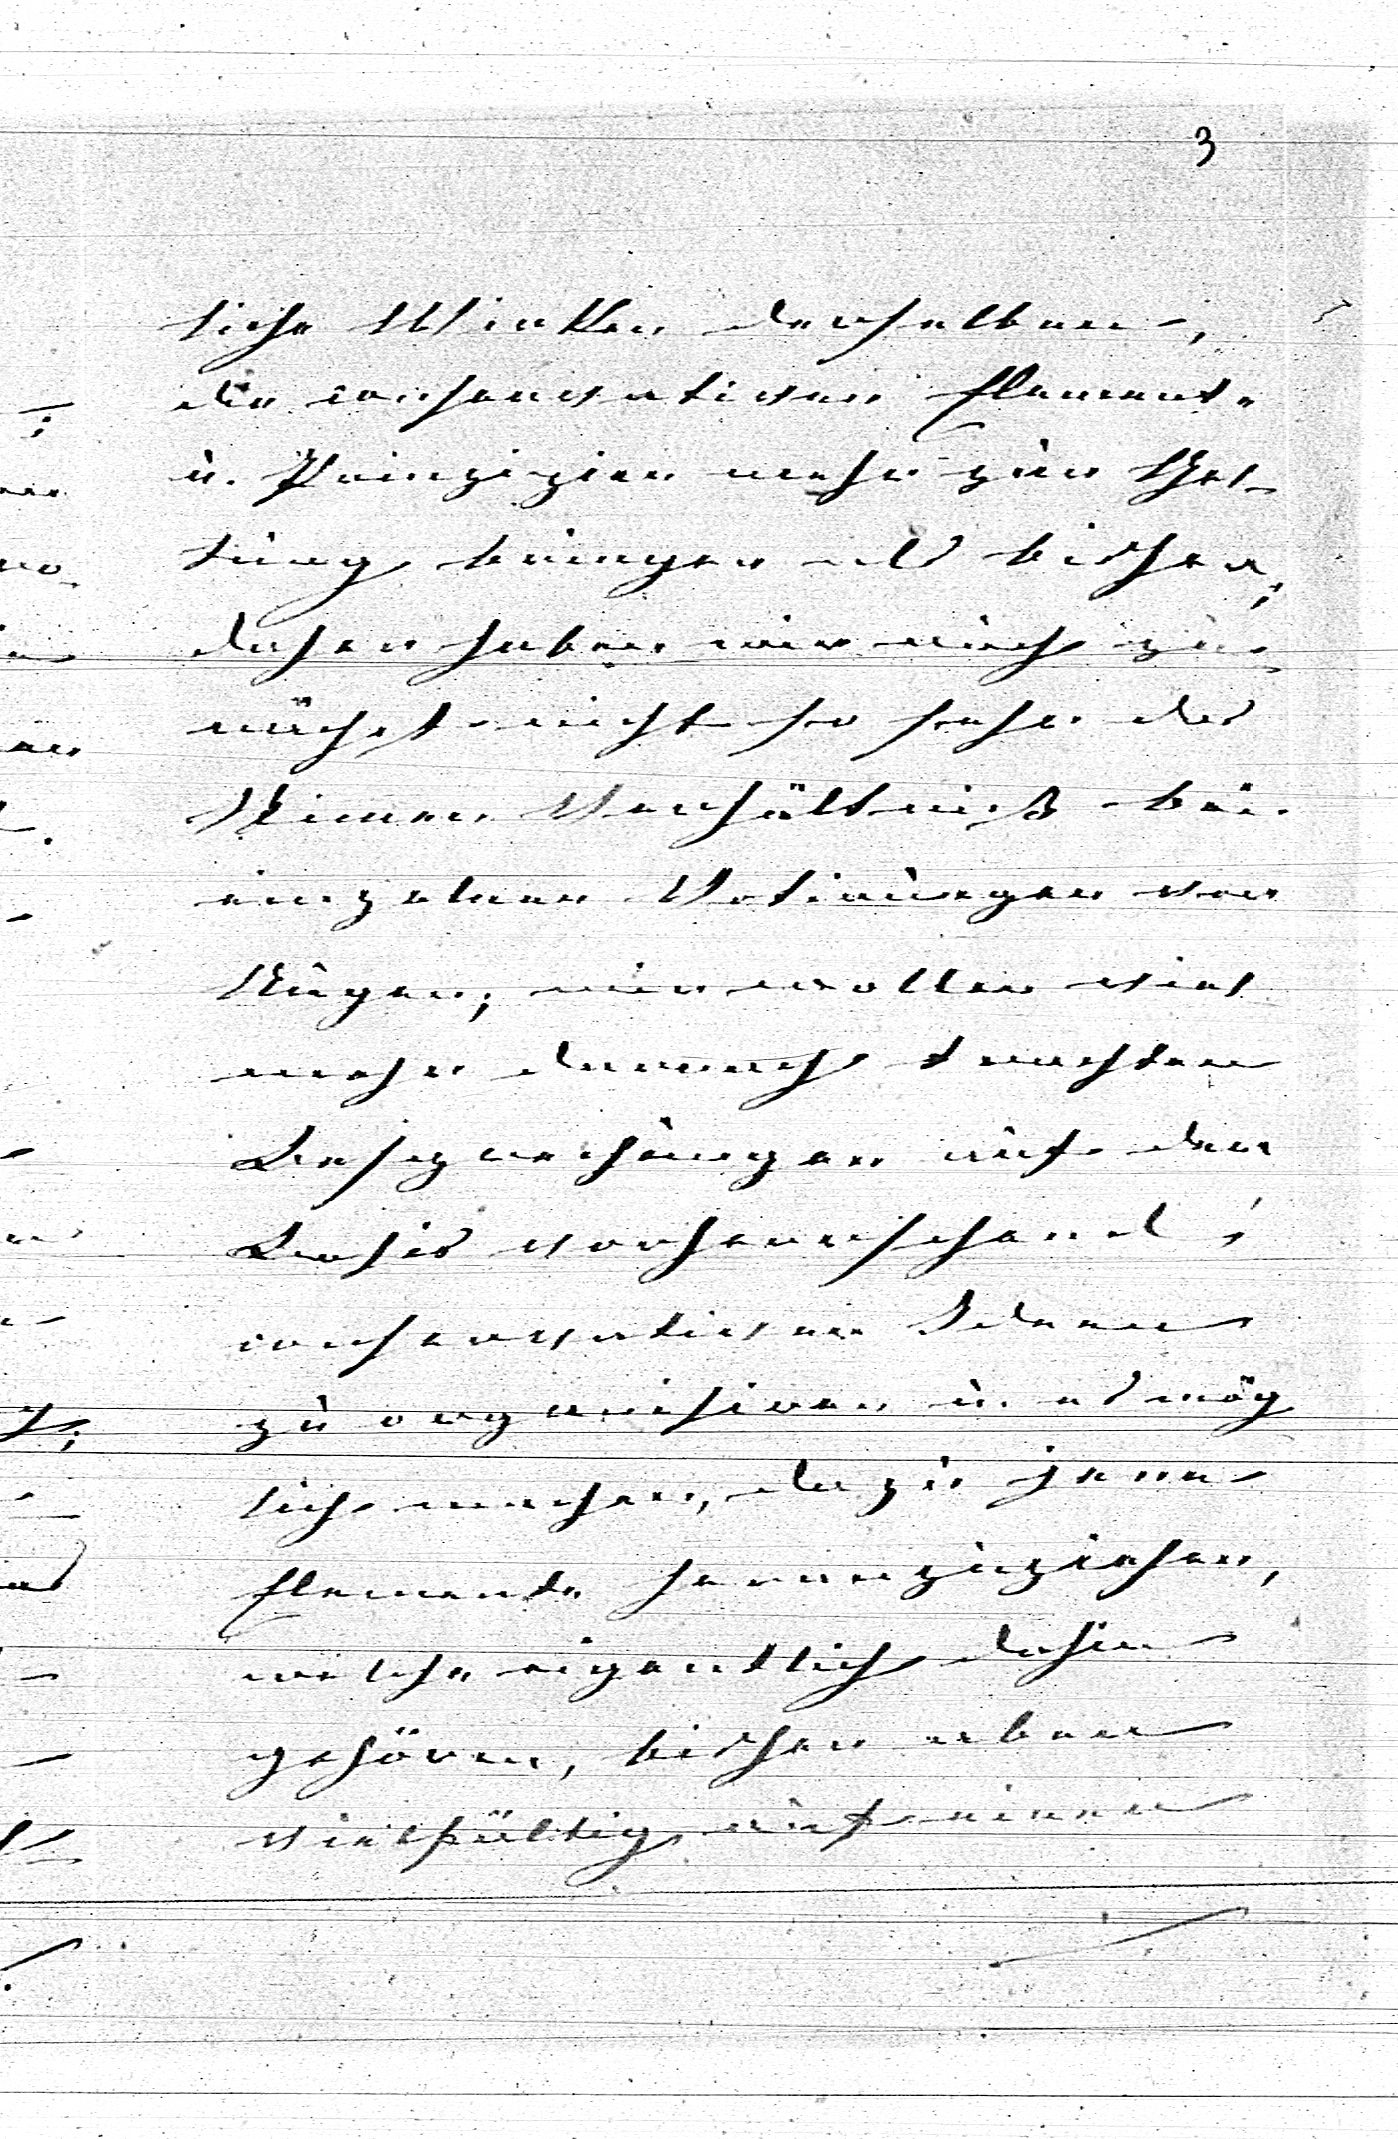 3
liche Wirken derselben,
die conservativen Elemente
u. Prinzipien mehr zur Gel-
tung bringen als bisher;
daher haben wir auch zu-
nächst nicht so sehr das
Stimmen Verhältniß bei
einzelnen Votirungen vor
Augen; wir wollen viel
mehr darnach trachten
auf der
Basis vorherrschend
conservativer Ideen
zu organisiren u. es mög
lich machen, dazu jene
Elemente heranzuziehen,
welche eigentlich dahin
gehören, bisher aber
vielfältig auf einen